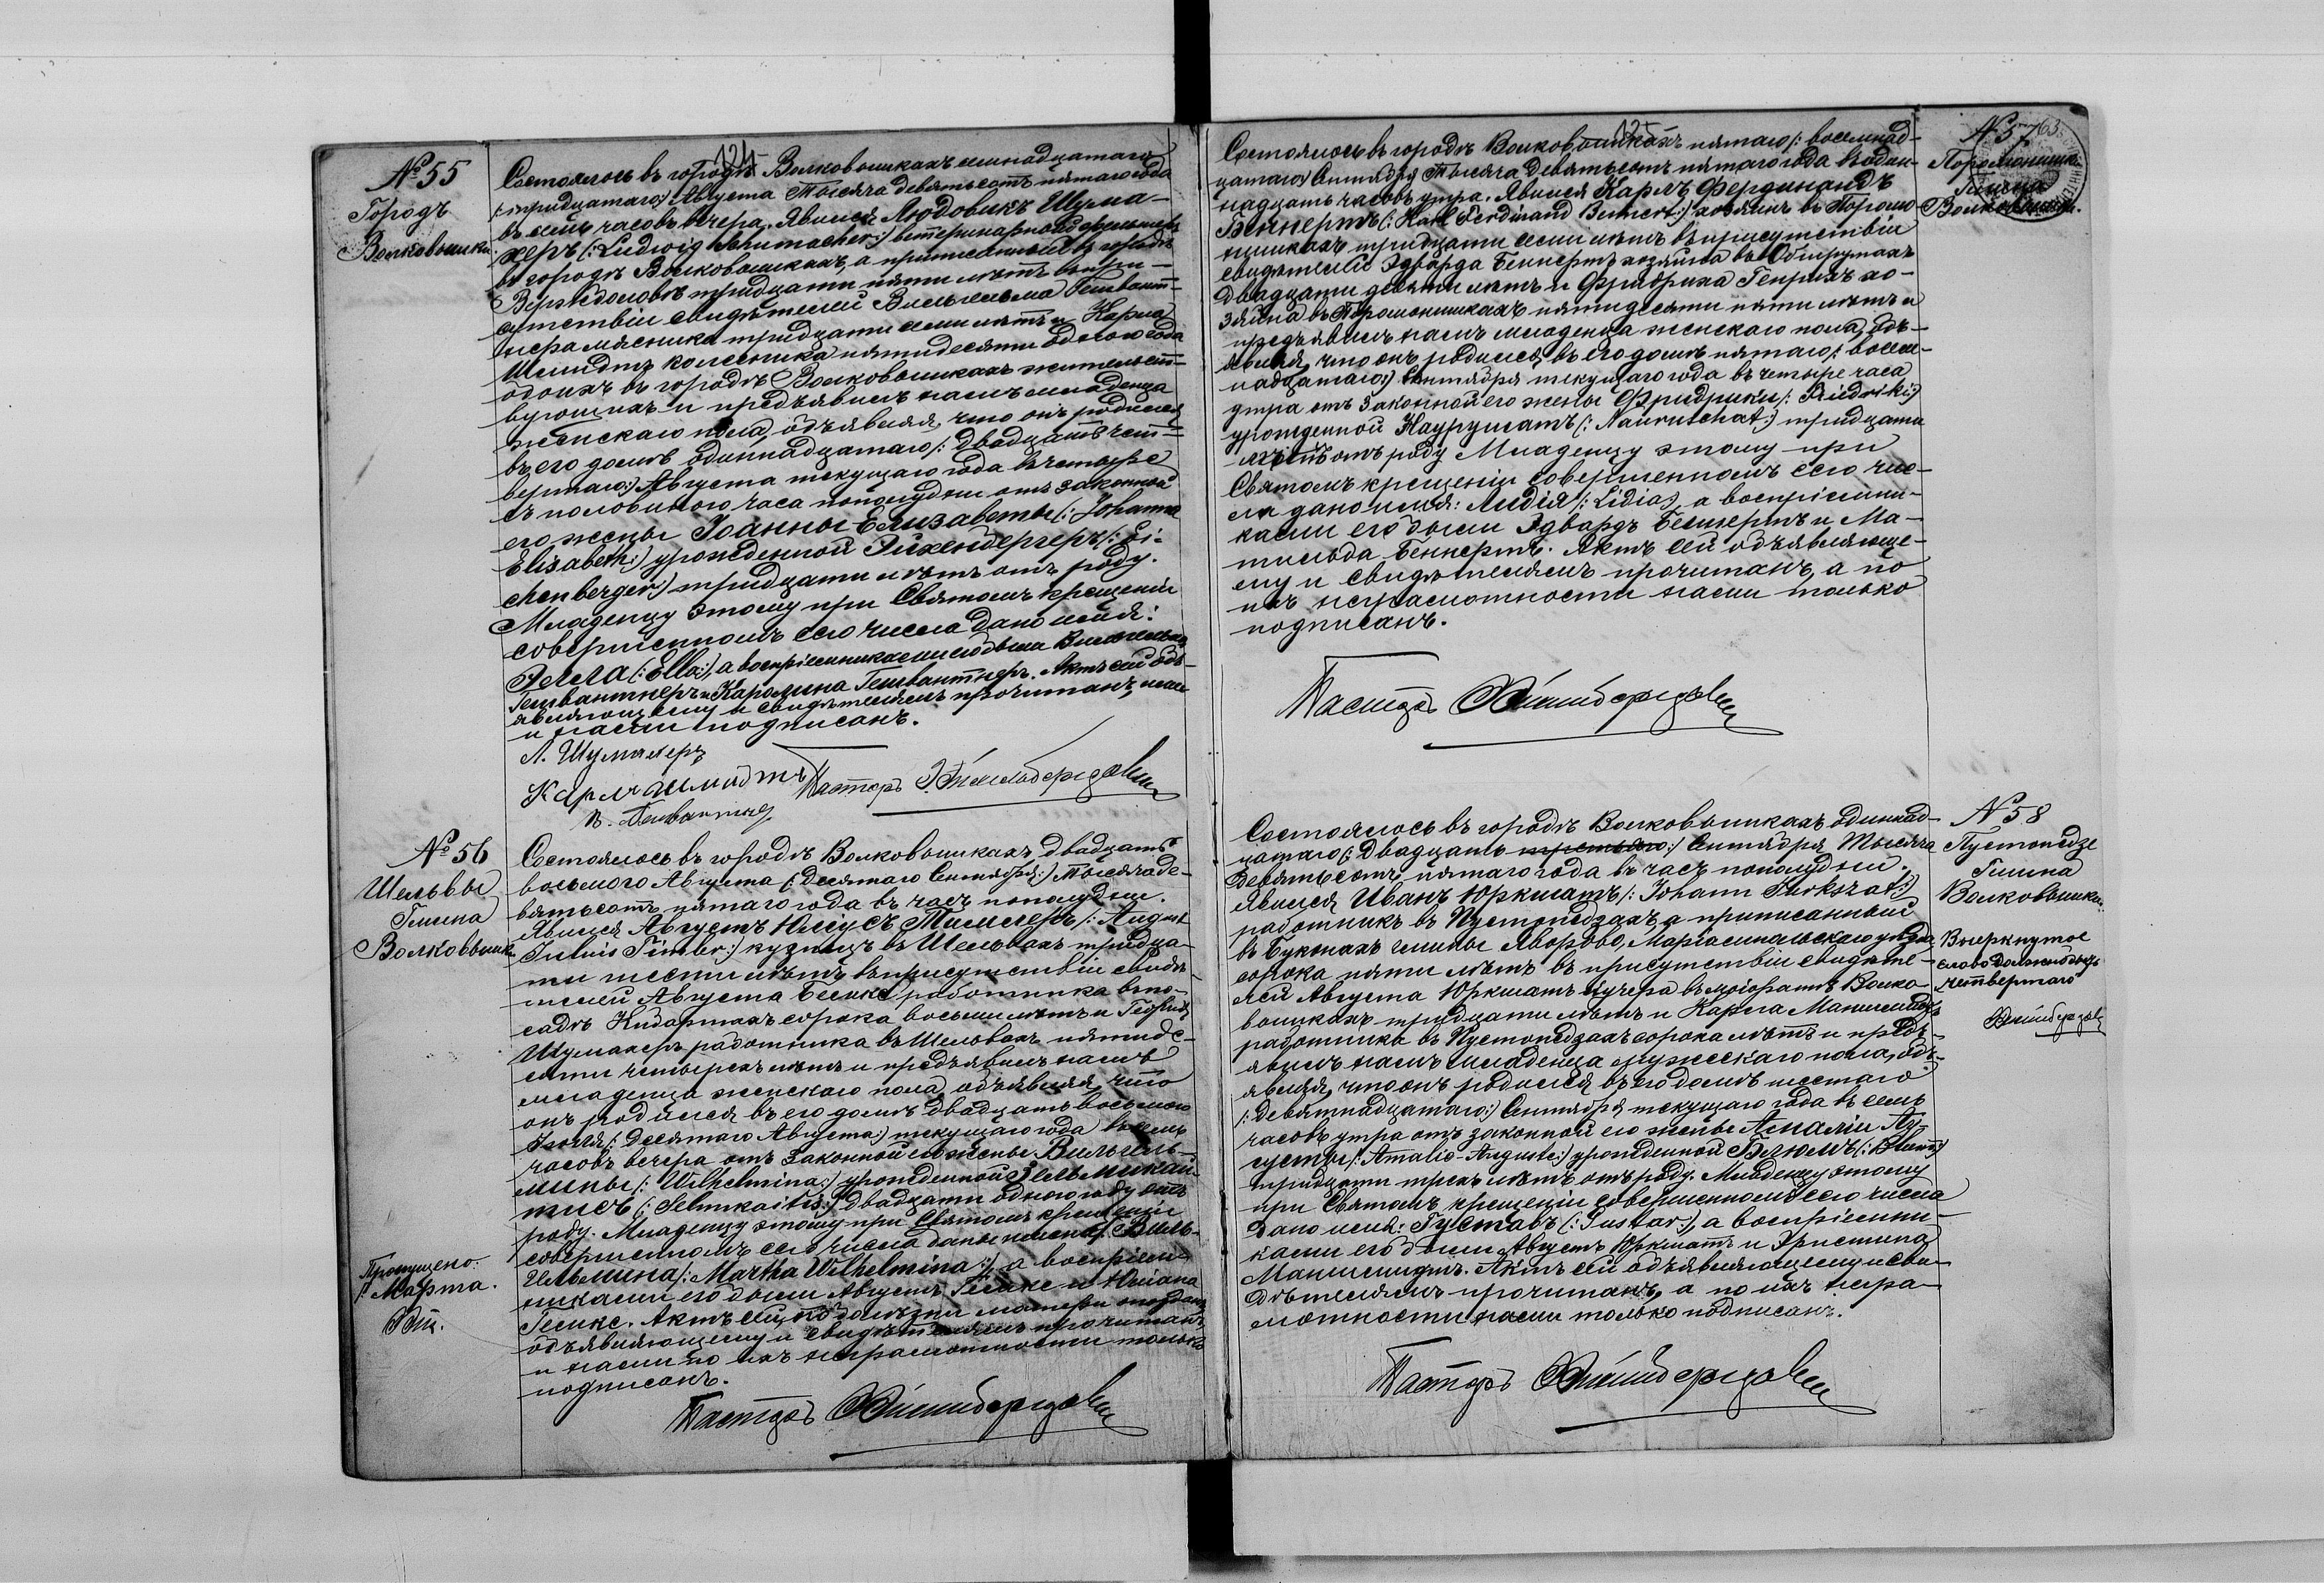 124
№ 55
Городъ
Волковышки
Состоялось въ городѣ Волковышкахъ семнадцатаго
(:тридцатаго:) Августа Тысяча девятьсотъ пятаго года
въ семь часовъ вечера. Явился Людовикъ Шума-
херъ (: Ludwig Schumacher:) ветеринарный фельдшеръ
въ городѣ Волковышкахъ, а приписанный въ городѣ
Вержболовѣ тридцати пяти лѣтъ въ при-
сутствіи свидѣтелей Вильгельма Гешвант-
нера мясника тридцати семи лѣтъ и Карла
Шмидтъ колесника пятидесяти одного года
обоихъ въ городѣ Волковышкахъ жительст-
вующихъ и предъявилъ намъ младенца
женскаго пола, объявляя, что онъ родился
въ его домѣ одиннадцатаго (: двадцать чет-
вертаго:) Августа текущаго года въ четыре
съ половиною часа пополудни отъ законной
его жены Іоанны Елизаветы (: Johanna
Elisabeth:) урожденной Эйхенбергеръ (: Ei-
chenberger:) тридцати лѣтъ отъ роду.
Младенцу этому при Святомъ крещеніи
совершенномъ сего числа дано имя:
Элла (: Ella:), а воспріемниками его были Вильгельмъ
Гешвантнеръ и Каролина Гешвантнеръ. Актъ сей объ-
являющему и свидѣтелямъ прочитанъ, ими
и нами подписанъ.
Л. Шумахеръ
Карлъ Шмидтъ Пасторъ
В. Гешвантнеръ
№ 56
Шельвы
Гмина
Волковышки
Состоялось въ городѣ Волковышкахъ двадцать
восьмого Августа (: Десятаго Сентября:) Тысяча де-
вятьсотъ пятаго года въ часъ пополудни.
Явился Августъ Юліусъ Тимлеръ (: August
Julius Timler:) кузнецъ въ Шельвахъ тридца-
ти шести лѣтъ въ присутствіи свидѣ-
телей Августа работника въ по-
садѣ Кибартахъ сорока восьми лѣтъ и
Шумахеръ работника въ Шельвахъ пятиде-
сяти четырехъ лѣтъ и предъявилъ намъ
младенца женскаго пола, объявляя, что
онъ родился въ его домѣ двадцать восьмого
Іюля (: Десятаго Августа:) текущаго года въ семь
часовъ вечера отъ законной его жены Вильгель-
мины (: Wilhelmina:) урожденной Зельмикай-
тисъ (: Selmikaitis:) двадцати одного году отъ
роду. Младенцу этому при Святомъ крещеніи
совершенномъ сего числа даны имена: Виль-
гельмина (: Martha Wilhelmina:), а воспріем-
никами его были Августъ и Юліана
Актъ сей, по болѣзни матери
объявляющему и свидѣтелямъ прочитанъ,
и нами по ихъ неграмотности только
подписанъ.
Пропущено:
(: Марта.
Пасторъ
125
№ 57
63
Гмина
Волковышки.
Состоялось въ городѣ Волковышкахъ пятаго (: восемнад-
цатаго:) Сентября Тысяча девятьсотъ пятаго года въ один-
надцать часовъ утра. Явился Карлъ Фердинандъ
Беннертъ (: Karl Ferdinand Bennert:) хозяинъ въ Поромо-
нишкахъ тридцати семи лѣтъ въ присутствіи
свидѣтелей Эдварда Беннертъ хозяина въ Обшрутахъ
двадцати девяти лѣтъ и Фридриха Генрихъ хо-
зяина въ Поромонишкахъ пятидесяти пяти лѣтъ и
предъявилъ намъ младенца женскаго пола, объ-
являя, что онъ родился въ его домѣ пятаго (: восем-
надцатаго:) Сентября текущаго года въ четыре часа
утра отъ законной его жены Фридрики (: Friedriki:)
урожденной Наурушатъ (: Naurutschat:) тридцати
лѣтъ отъ роду Младенцу этому при
Святомъ крещеніи совершенномъ сего чис-
ла дано имя: Лидія (: Lidia:), а воспріемни-
ками его были Эдвардъ Беннертъ и Ма-
тильда Беннертъ. Актъ сей объявляюще-
му и свидѣтелямъ прочитанъ, а по
ихъ неграмотности нами только
подписанъ.
Пасторъ
№ 58
Пустопедзе
Гмина
Волковышки
Вычеркнутое
слово должно быть
четвертаго
Состоялось въ городѣ Волковышкахъ одиннад-
цатаго (: Двадцать третьяго:) Сентября Тысяча
девятьсотъ пятаго года въ часъ пополудни.
Явился Иванъ Юркшатъ (: Johann Jurkszat:)
работникъ въ Пустопедзахъ, а приписанный
въ Буктахъ гмины Яворово, Маріампольскаго уѣзда
сорока пяти лѣтъ въ присутствіи свидѣте-
лей Августа Юркшатъ кучера въ маіоратѣ Волко-
вышкахъ тридцати лѣтъ и Карла Маншмидтъ
работника въ Пустопедзахъ сорока лѣтъ и предъ-
явилъ намъ младенца мужескаго пола, объ-
являя, что онъ родился въ его домѣ шестаго
(: Девятнадцатаго:) Сентября текущаго года въ семь
часовъ утра отъ законной его жены Амаліи Ав-
густы (: Amalie-Auguste:) урожденной Блюмъ (: Blum:)
тридцати трехъ лѣтъ отъ роду. Младенцу этому
при Святомъ крещеніи совершенномъ сего числа
дано имя: Густавъ (: Gustav:), а воспріемни-
ками его были Августъ Юркшатъ и Христина
Маншмидтъ. Актъ сей объявляющему и сви-
дѣтелямъ прочитанъ, а по ихъ негра-
мотности нами только подписанъ.
Пасторъ